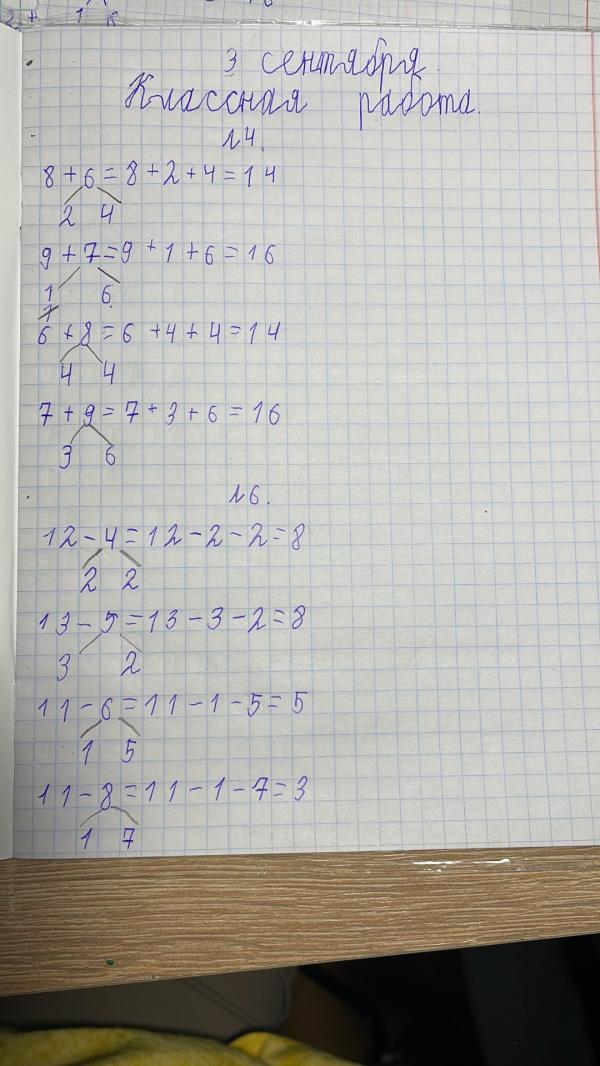 3 сентября.
Классная работа.
№4.
8+6=8+2+4=14
2 4
9+7=9+1+6=16
1 6
6+8=6+4+4=14
4 4
7+9=7+3+6=16
3 6
№6.
12-4=12-2-2=8
2 2
13-5=13-3-2=8
3 2
11-6=11-1-5=5
1 5
11-8=11-1-7=3
1 7